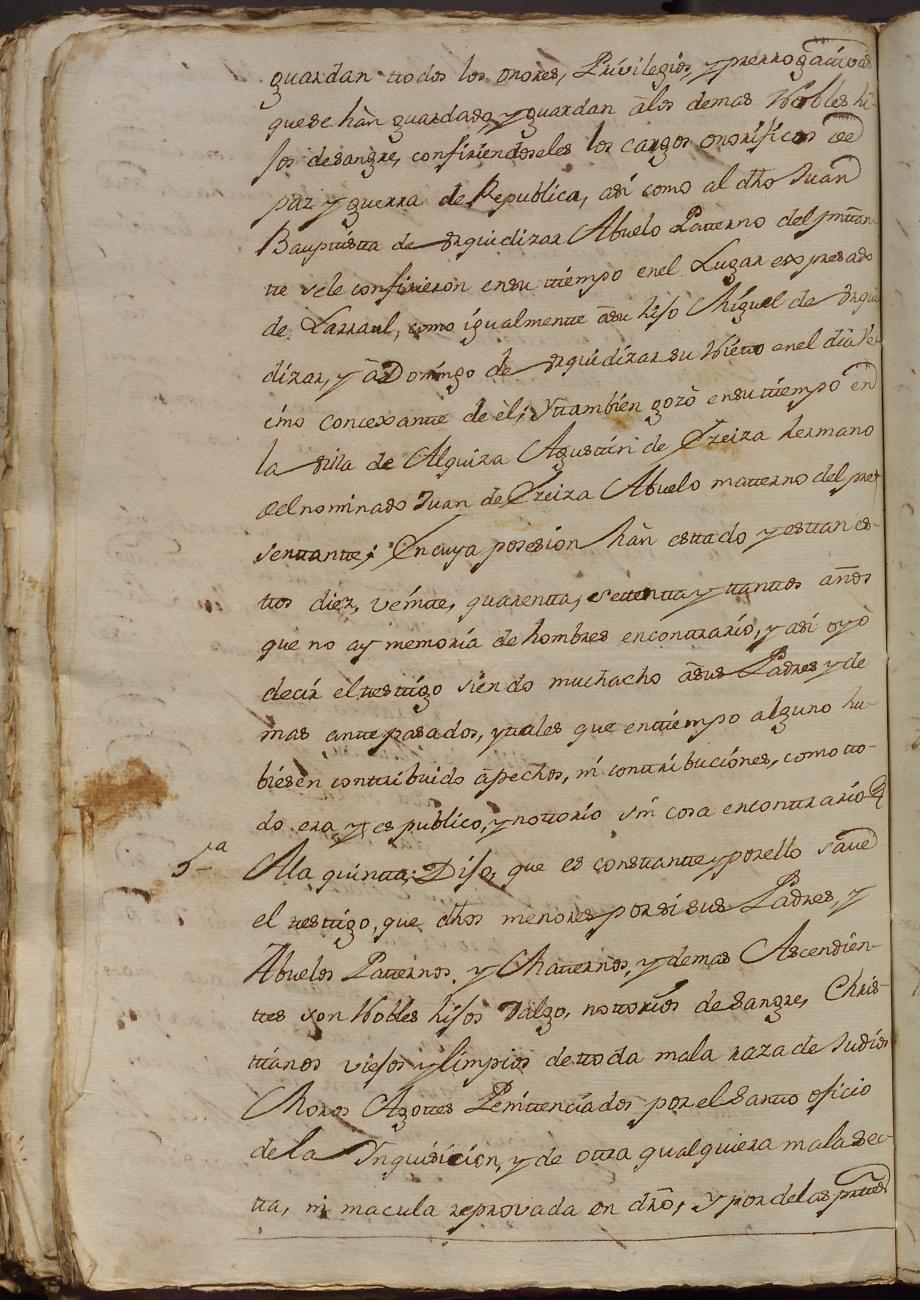 guardan ttodos los onores, Privilegios, y prerrogativas
que se hàn guardado, y guardan àlos demas Nobles hi-
jos desangre, confiriendoseles los cargos onorificos de
paz y guerra de Republica, asi como al dho Juan
Baupttistta de Urquidizar Abuelo Patterno del presenttan
tte sele confirieron ensu ttiempo enel Lugar expresado
de Larraul, como igualmentte àsu hijo Miguel de Urqui
dizar, y àDomingo de Urquidizar su Nietto enel dia Ve-
cino concexantte de èl; Yttambien gozò ensu ttiempo en
la Villa de Alquiza Agusttin de Yzeiza hermano
del nominado Juan de Yzeiza Abuelo matterno del pre
senttantte; Encuya posesion hàn esttado y esttan es-
ttos diez, veintte, quarentta, settentta y ttanttos años
que no ay memoria de hombres enconttrario, y asi oyò
decir el testtigo siendo muchacho àsus Padres y de
mas anttepasados, yttales que enttiempo alguno hu-
biesen conttribuido àpechos, ni conttribuciónes, como tto-
do era y es publico, y nottorio sin cosa enconttrario
5ª Ala quintta; Dijo, que es consttantte y porello save
el testtigo, que dhos menores porsi sus Padres, y
Abuelos Patternos y Matternos, y demas Ascendien-
ttes son Nobles hijos Dalgo, nottorios de sangre, Chris-
ttianos viejos y limpios de ttoda mala raza de Judios
Moros Agottes Penittenciados por el Santto oficio
de la Ynquisicion, y de ottra qualquiera mala sec-
tta, ni macula reprovada en dro, y por de las parttes